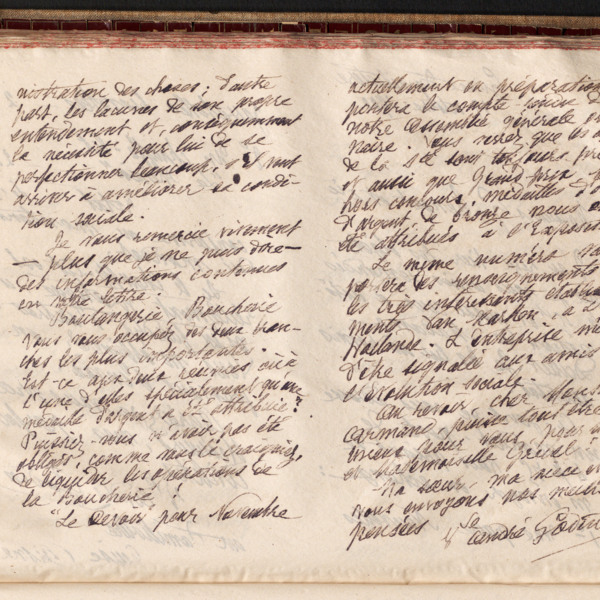 nostration des choses ; d'autre
part, les lacunes de son propre
entendement et, conséquemment
la nécessité pour lui de se
perfectionner beaucoup, s'il veut
arriver à améliorer sa condi-
tion sociale.
Je vous remercie vivement
— plus que je ne puis dire —
des informations contenues
en votre lettre.
Boulangerie, Boucherie
vous vous occupez des deux bran-
ches les plus importantes.
Est-ce aux deux réunies où à
l'une d'elles spécialement qu'une
médaille d'argent a été attribuée ?
Puissiez-vous n'avoir pas été
obligés, comme vous le craigniez,
de liquider les opérations de
la Boucherie !
"Le Devoir" pour Novembre
actuellement en préparation
portera le compte rendu de
notre assemblée générale
naire. Vous verrez que les
de la Sté sont toujours
et aussi que Grand prix,
hors concours, médailles d'o
d'argent de bronze nous
été attribués à l'Exposi
Le même numéro
portera des renseignements
les très intéressants établis
ments Van Marken, à
Hollande. L'entreprise mé
d'être signalée aux amis
l'Evolution sociale.
Au revoir, cher Mons
Carmand, puisse tout être
mieux pour vous, pour
et Mademoiselle
Ma sœur, ma nièce
vous envoyons nos meill
pensées
Vve André Godin